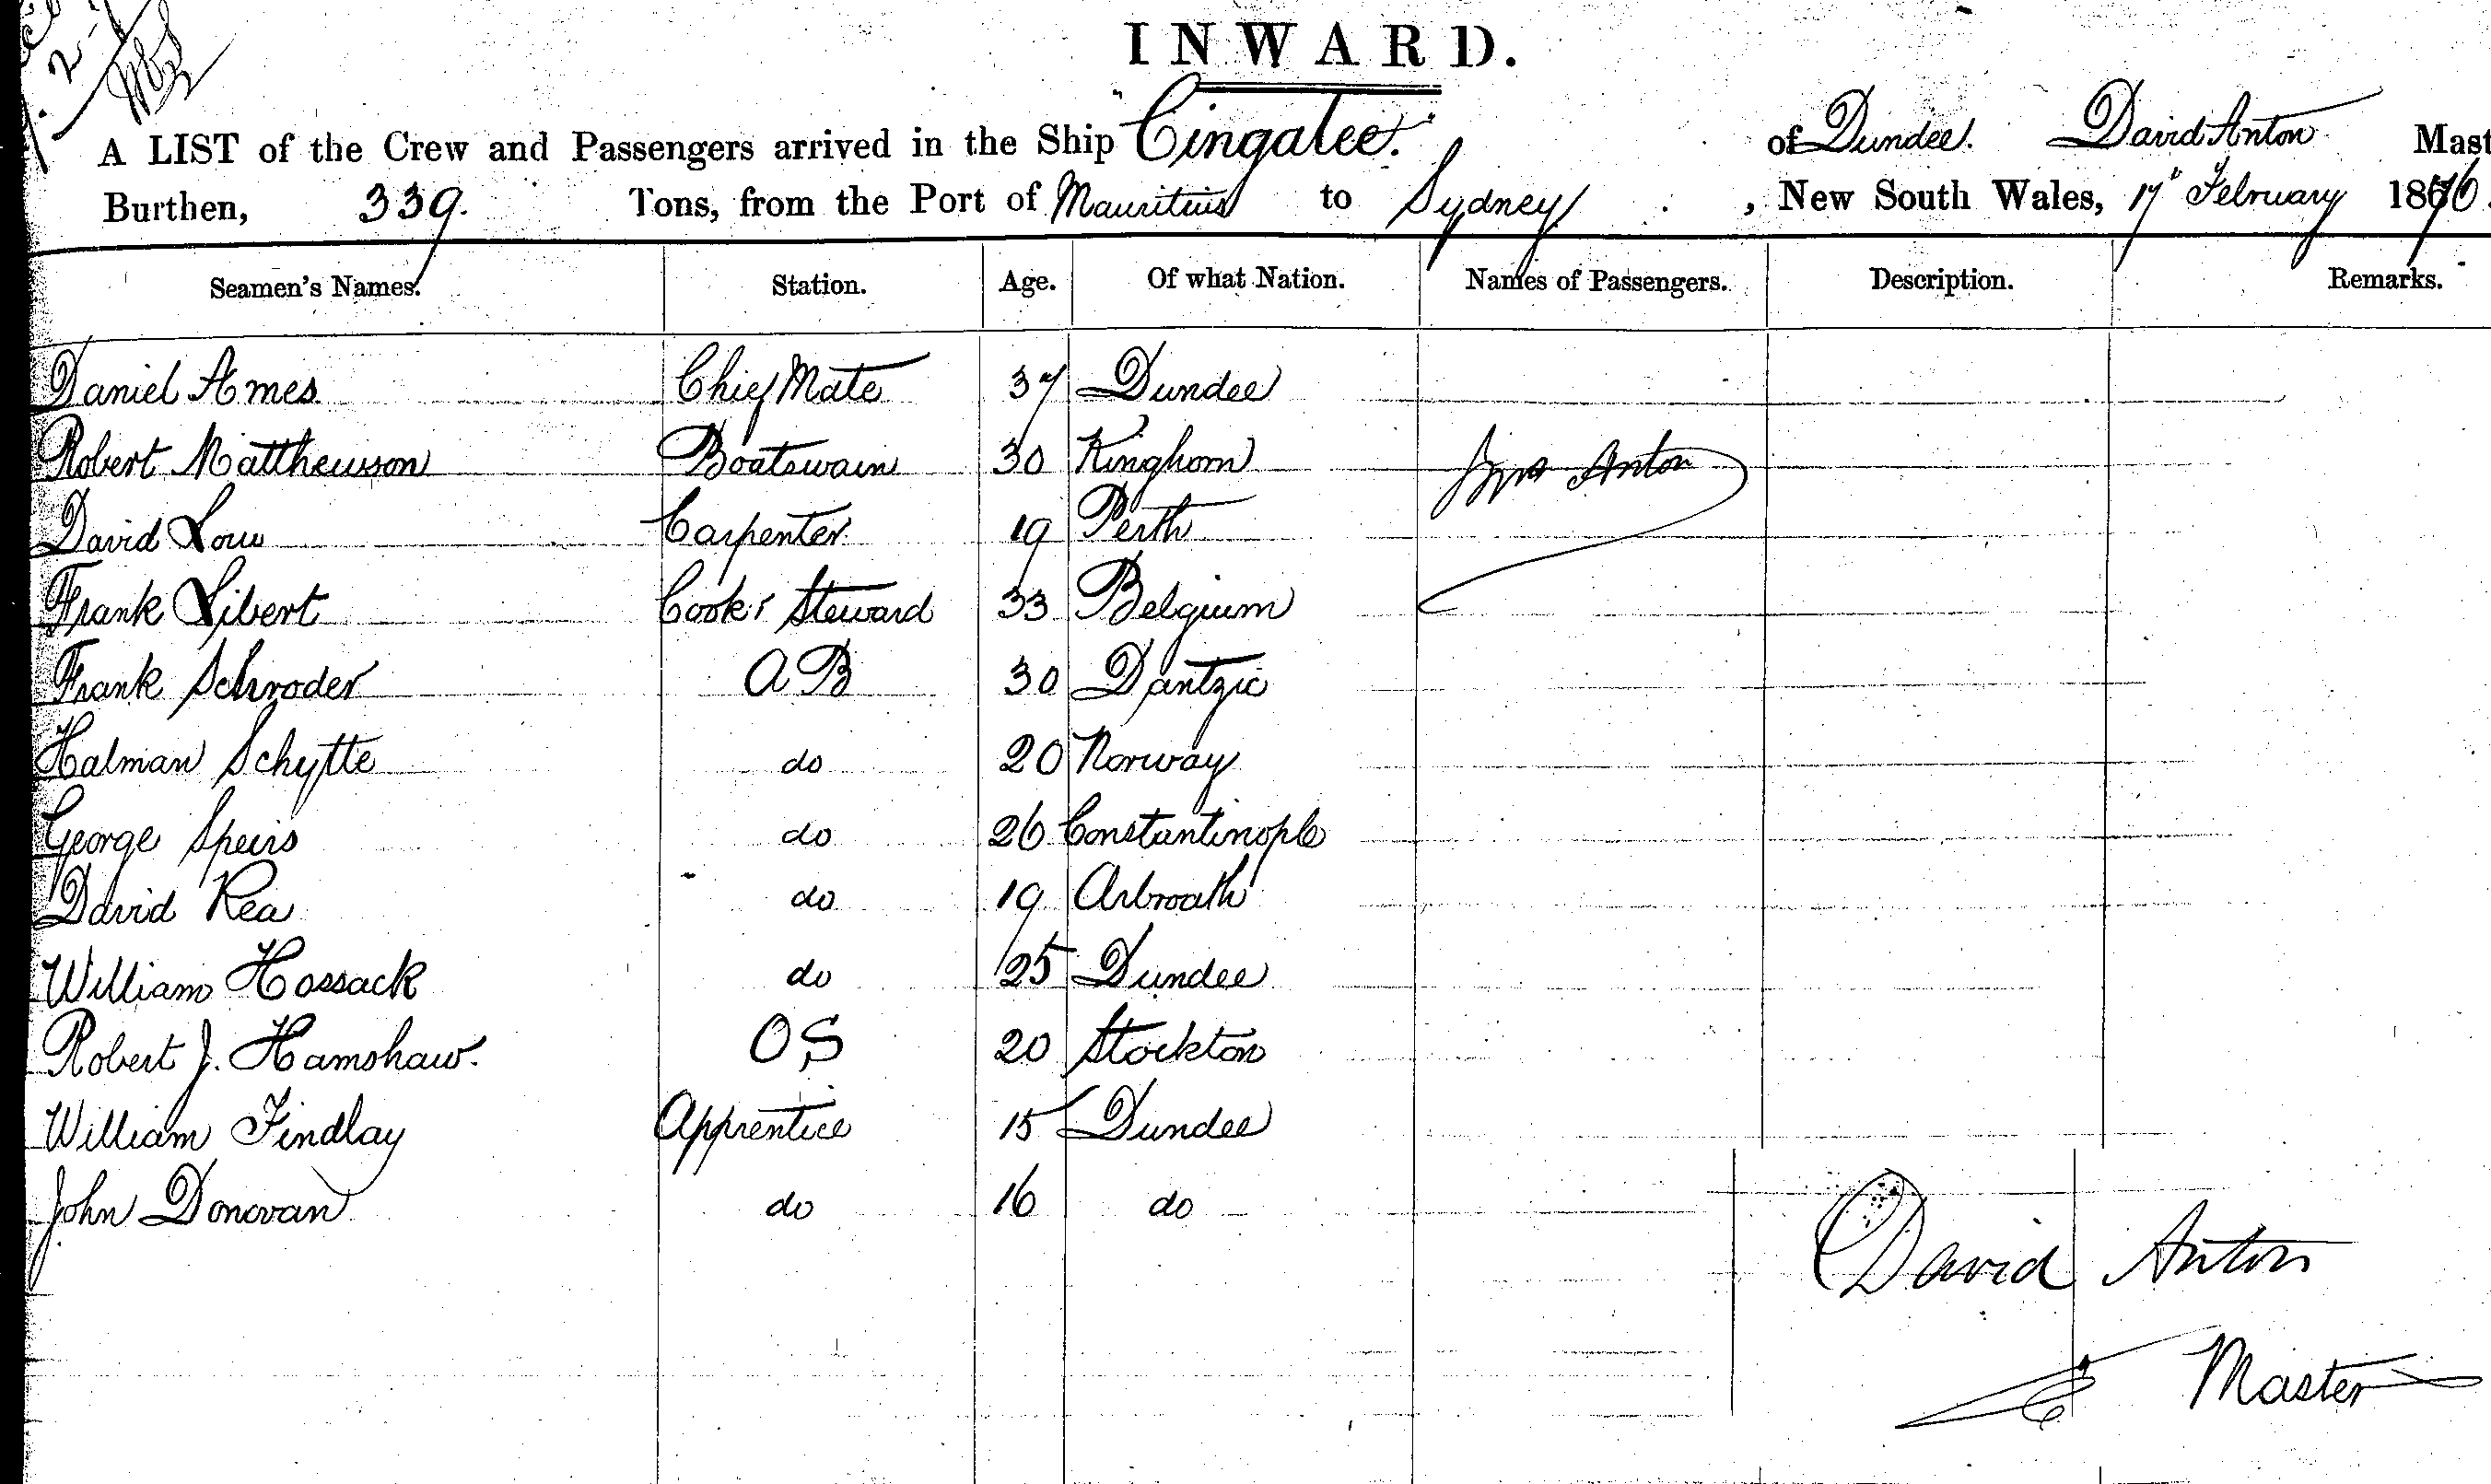 INWARD.
A LIST of the Crew and Passengers arrived in the Ship "Cingalee." of Dundee. David Anton Mast
Burthen, 339. Tons, from the Port of Mauritius to Sydney, New South Wales, 17th February 1876.
Seamen's Names. Station. Age. Of what Nation. Names of Passengers. Description. Remarks.
Daniel Ames Chief Mate 37 Dundee
Robert Matthewson Boatswain 30 Kinghorn Mrs Anton
David Low Carpenter 19 Perth
Frank Libert Cook & Steward 33 Belgium
Frank Schroder AB 30 Dantzic
Halman Schytte do 20 Norway
George Speirs do 26 Constantinople
David Rea do 19 Arbroath
William Hossack do 25 Dundee
Robert J. Hamshaw. OS 20 Stockton
William Findlay Apprentice 15 Dundee
John Donovan do 16 do
David Anton
Master